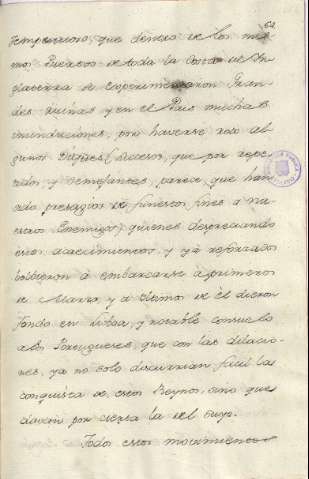 62
tempestuoso, que dentro de los mis
mos Puertos de toda la Costa de In
glaterra se experimentaron gran
des ruinas y en el Pais muchas
inundaciones, por haverse roto al
gunos Diques (sucesos, que por repe
tidos, y semejantes, parece, que han
sido presagios de funestos fines a nu
estros Enemigos) quienes despreciando
estos acaecimientos, y ya reforzados
bolbieron à embarcarse à primeros
de Marzo, y à ultimos de èl dieron
fondo en Lisboa, y notable consuelo
a los Portugueses, que con las dilacio
nes, ya no solo discurrian facil la
conquista de estos Reynos, sino que
davan por cierta la del suyo.
Todos estos movimientos